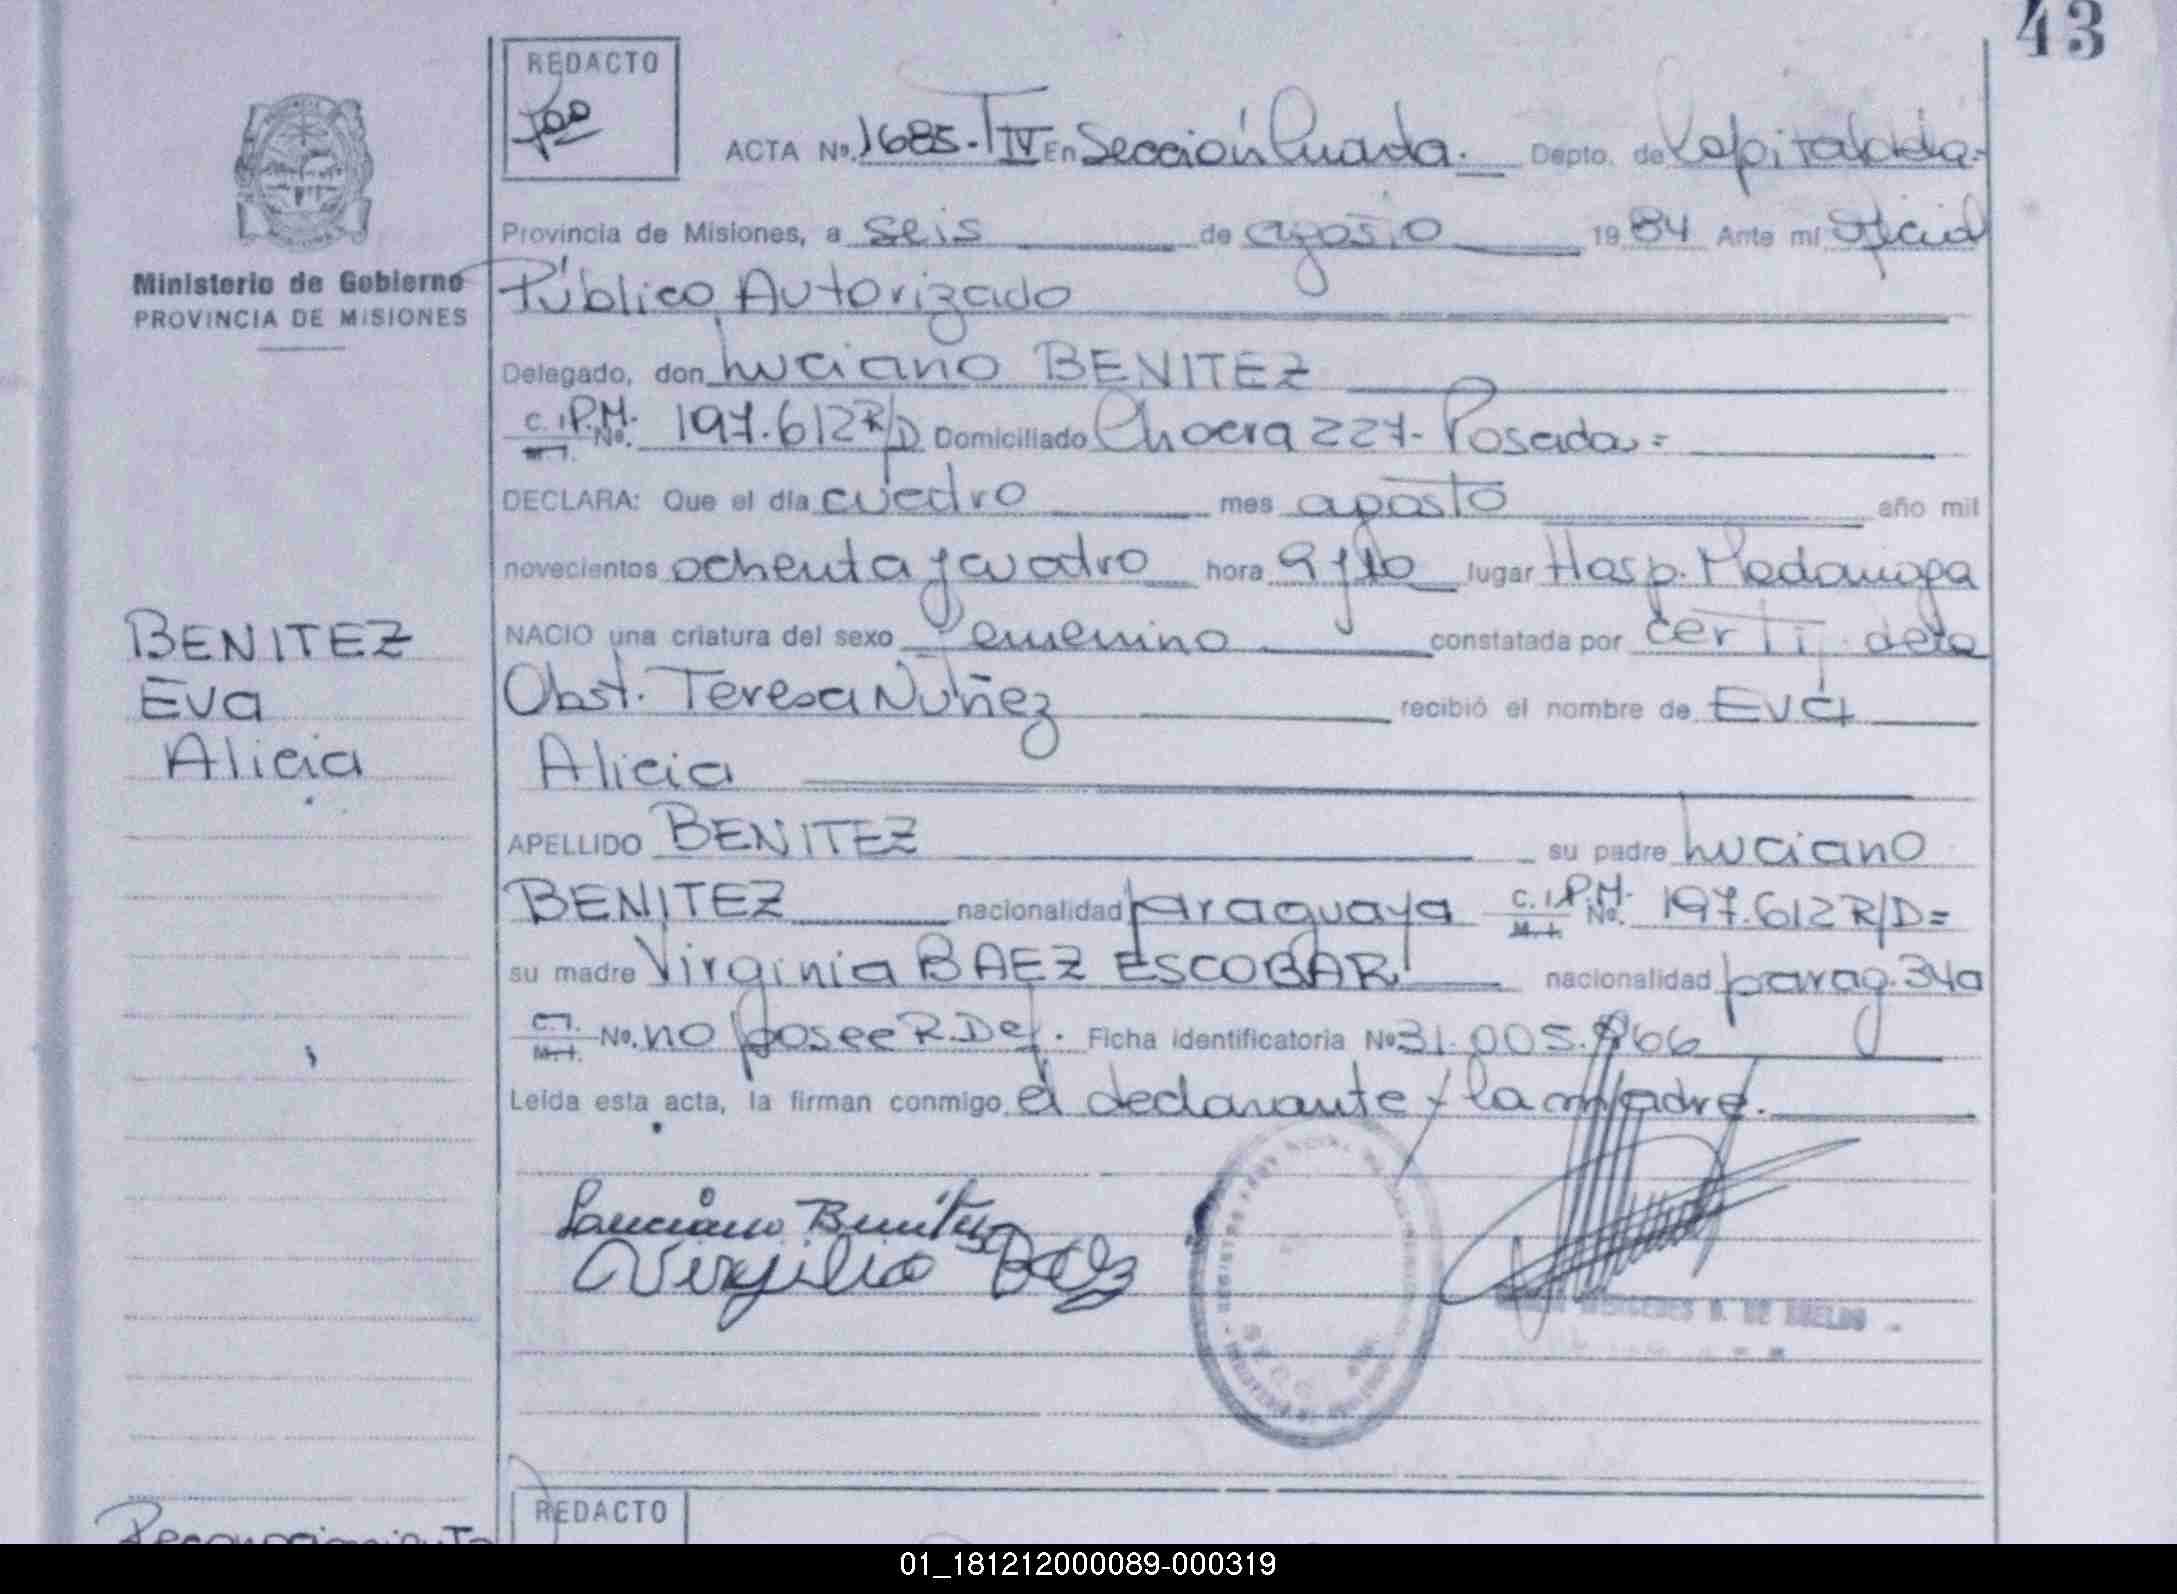 43
REDACTO
ACTA Nº. 1685. T IV En Sección Cuarta. Depto. de Capital de la
Provincia de Misiones, a seis de agosto 19 84 Ante mi oficial
Ministerio de Gobierno
PROVINCIA DE MISIONES
Público Autorizado
Delegado, don Luciano BENITEZ
C. I. P.M. Nº. 197.612 R/D Domiciliado Chacra 227- Posadas=
M. I.
DECLARA: Que el día cuatro mes agosto año mil
novecientos ochenta y cuatro hora 9 y 10 lugar Hosp. Madariaga
NACIO una criatura del sexo Femenino constatada por certi. de la
Obst. Teresa Nuñez recibió el nombre de Eva
Alicia
BENITEZ
Eva
Alicia
APELLIDO BENITEZ su padre Luciano
BENITEZ nacionalidad paraguaya C. I. P.M. Nº. 197.612 R/D=
M. I.
su madre Virginia BAEZ ESCOBAR nacionalidad parag. 34a
C. I. Nº. no posee R.Def. Ficha identificatoria Nº 31.005.966
M. I.
Leída esta acta, la firman conmigo el declarante y la madre.
Luciano Benitez
Virgilia Baez
MERCEDES DE
REDACTO
Reconocimiento
01_181212000089-000319